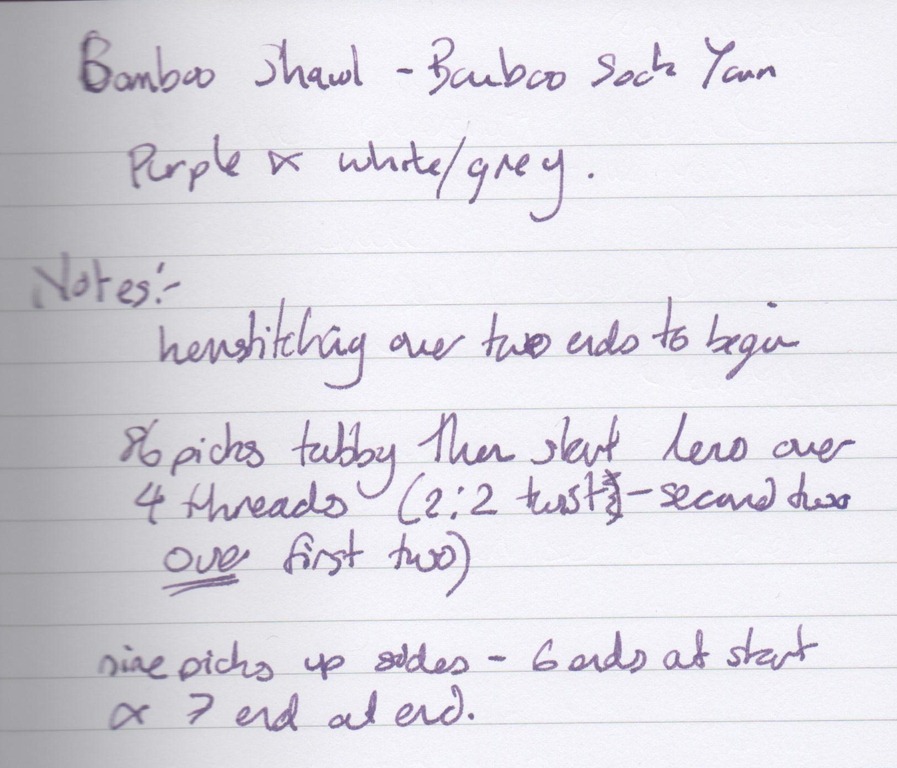 Bamboo Shawl - Bamboo Sock Yarn
Purple & white/grey.
Notes:-
hemstitching over two ends to begin
86 picks tabby then start leno over
4 threads (2:2 twist - second two
over first two)
nine picks up sides - 6 ends at start
& 7 end at end.